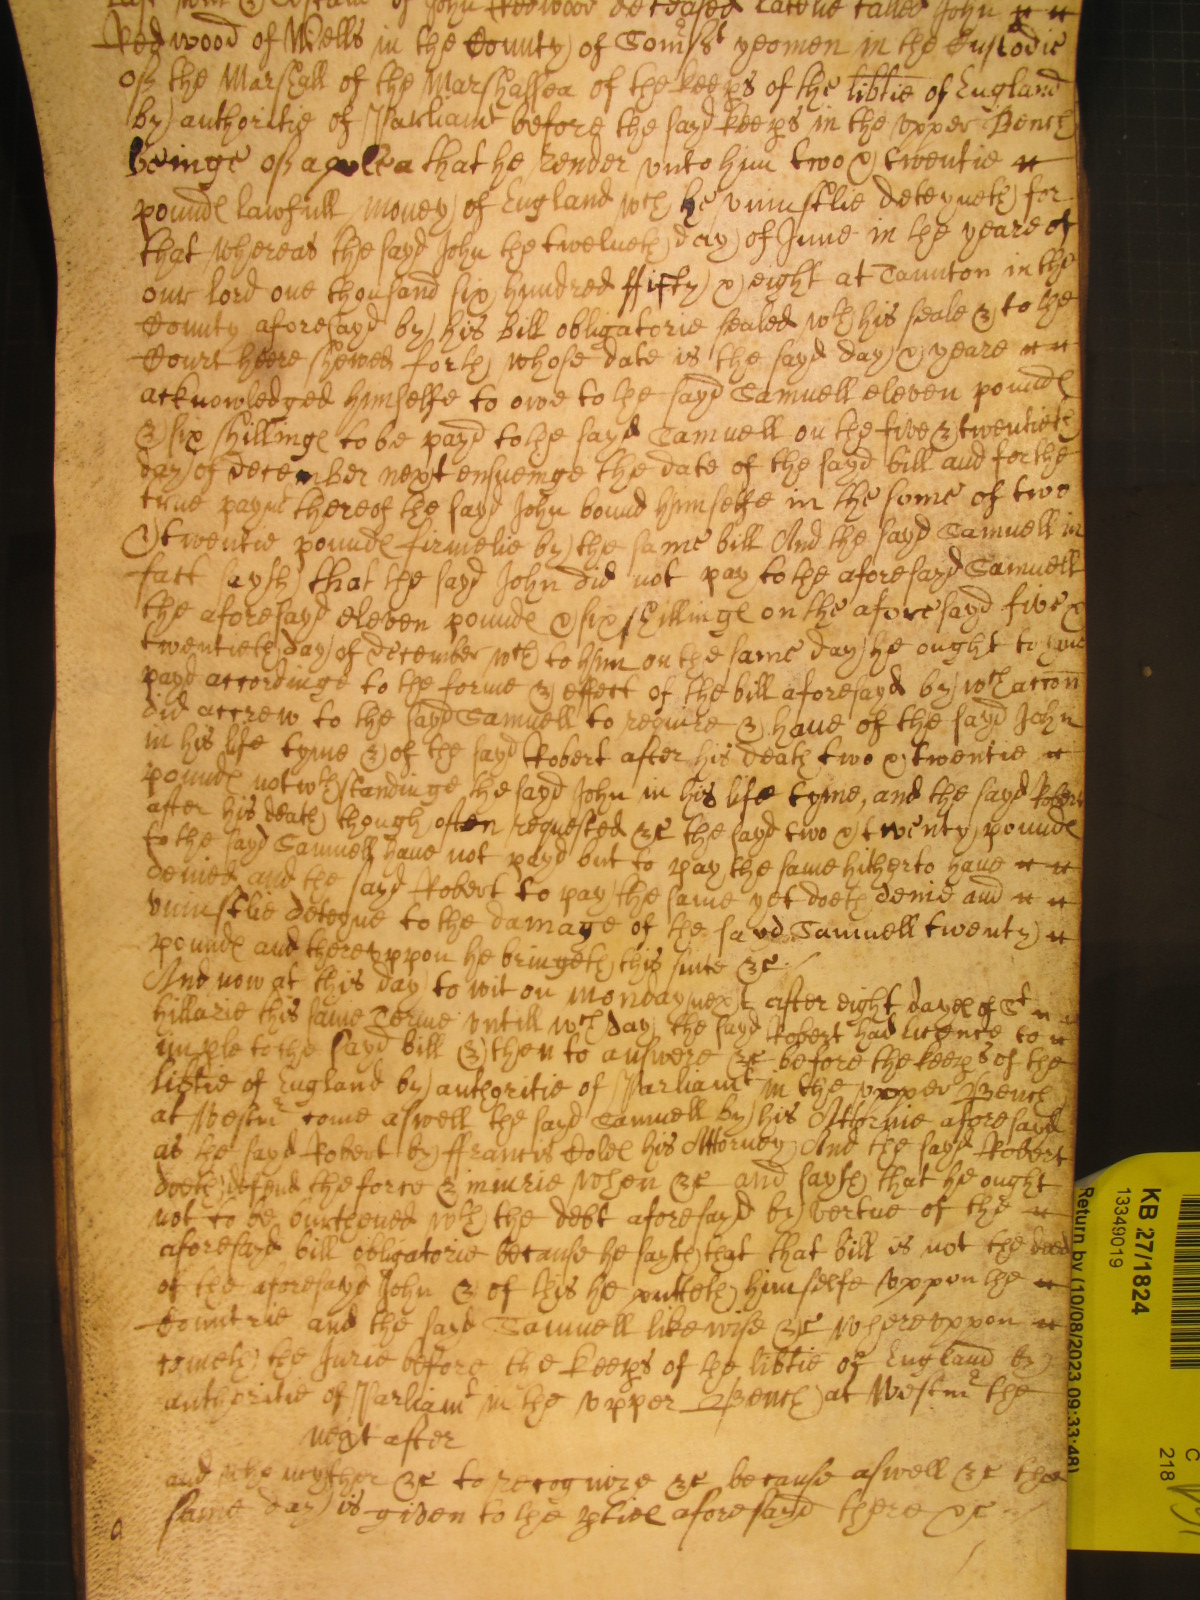 last will & Testam of John Redwood deceased latelie called John
Redwood of Wells in the County of Som's't yeomen in the Custodie
of the Marshall of the Marshalsea of the keeps of the lib'tie of England
by authoritie of Parliam't before the sayd keeps in the Upper Bench
beinge of a plea that he render unto him two & twentie
pounds lawfull money of England w'ch he uniustlie deteyneth for
that whereas the sayd John the twelveth day of June in the yeare of
our lord one thousand six hundred ffifty & eight at Taunton in the
County aforesayd by his bill obligatorie sealed w'th his seale & to the
Court heere shewed forth whose date is the sayd day & yeare
acknowledged himselfe to owe to the sayd Samuell eleven pounds
& six shillings to be payd to the sayd Samuell on the five & twentieth
day of December next ensueinge the date of the sayd bill and for the
true paym't thereof the sayd John bound himselfe in the some of two
& twentie pounds firmelie by the same bill And the sayd Samuell in
fact sayth that the sayd John did not pay to the aforesayd Samuell
the aforesayd eleven pounds & six shillings on the aforesayd five &
twentieth day of December w'ch to him on the same day he ought to have
payd accordinge to the forme & effect of the bill aforesayd by w'ch accon
did accrew to the sayd Samuell to require & have of the sayd John
in his life tyme & of the sayd Robert after his death two & twentie
pounds notw'thstandinge the sayd John in his life tyme, and the sayd Robert
after his death though often requested &c the sayd two & twenty pounds
to the sayd Samuell have not payd but to pay the same hitherto have
denied and the sayd Robert to pay the same yet doeth denie and
uniustlie deteyne to the damage of the sayd Samuell twenty
pounds and thereuppon he bringeth this suite &c
And now at this day to wit on Monday next after eight dayes of S't
Hillarie this same Terme untill w'ch day the sayd Robert had licence to
imple to the sayd bill & then to answere &c before the keeps of the
lib'tie of England by authoritie of Parliam't in the upper Bench
at Westm' come aswell the sayd Samuell by his Attornie aforesayd
as the sayd Robert by ffrancis Coles his Attorney And the sayd Robert
doeth defend the force & iniurie when &c and sayth that he ought
not to be burthened w'th the debt aforesayd by vertue of the
aforesayd bill obligatorie because he sayth that that bill is not the deed
of the aforesayd John & of this he putteth himselfe uppon the
Countrie and the sayd Samuell likewise &c whereuppon
cometh the Jurie before the keeps of the lib'tie of England by
authoritie of Parliam't in the upper Bench at Westm' the
next after
and who neyther &c to recognize &c because aswell &c the
same day is given to the p'ties aforesayd there &c
KB 27/1824
13349019
Return by (10/08/2023 09:33:48)
C
218